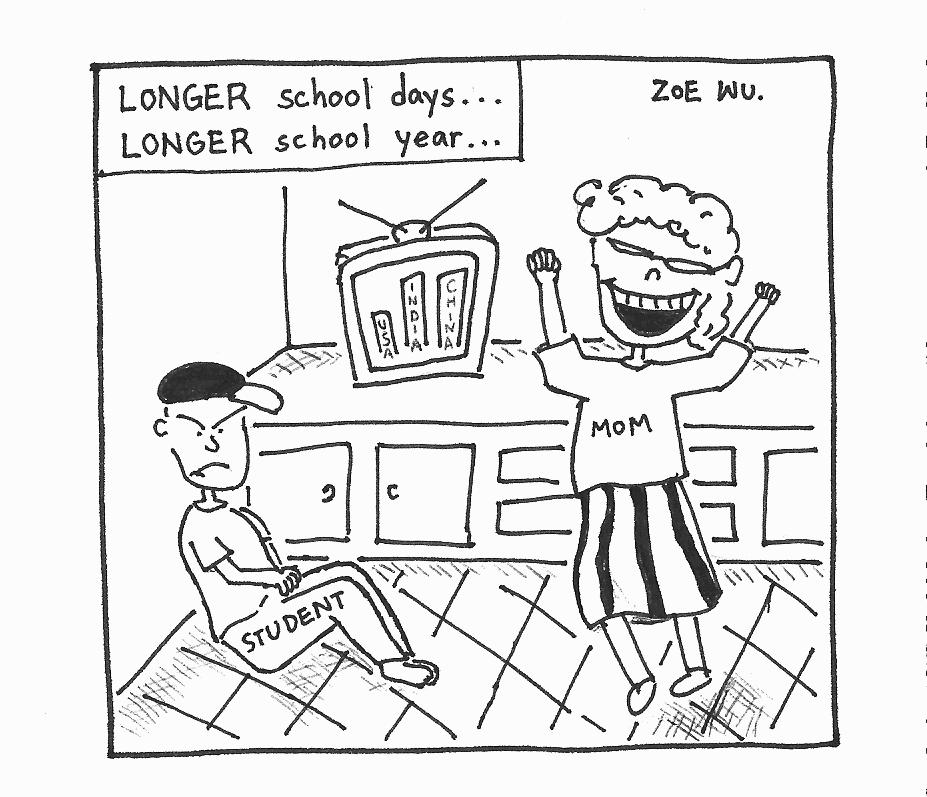 LONGER school days...
LONGER school year...
ZOE WU.
USA
INDIA
CHINA
MOM
STUDENT